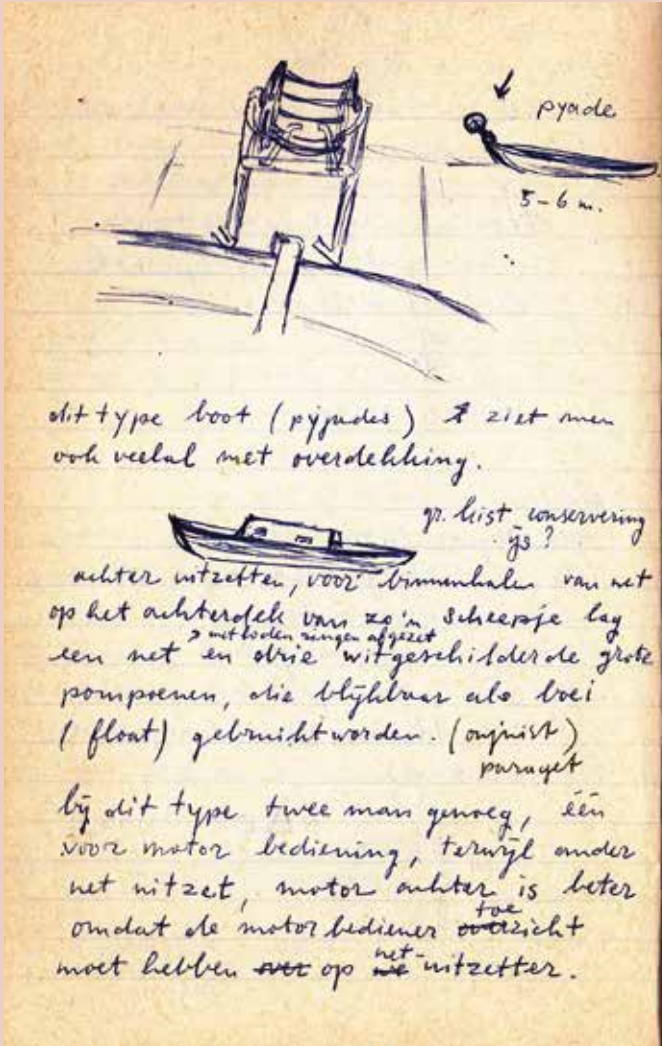 pyade
5-6 m.
dit type boot (pyjades) ziet men
ook veelal met overdekking.
gr. kist conservering
ijs?
achter uitzetten, voor binnenhalen van net
op het achterdek van zo'n scheepje lag
met loden ringen afgezet
een net en drie witgeschilderde grote
pompoenen, die blijkbaar als boei
(float) gebruikt worden. (onjuist)
bij dit type twee man genoeg, één
voor motor bediening, terwijl ander
net uitzet, motor achter is beter
toe
omdat de motorbediener overzicht
net-
moet hebben over op we uitzetter.